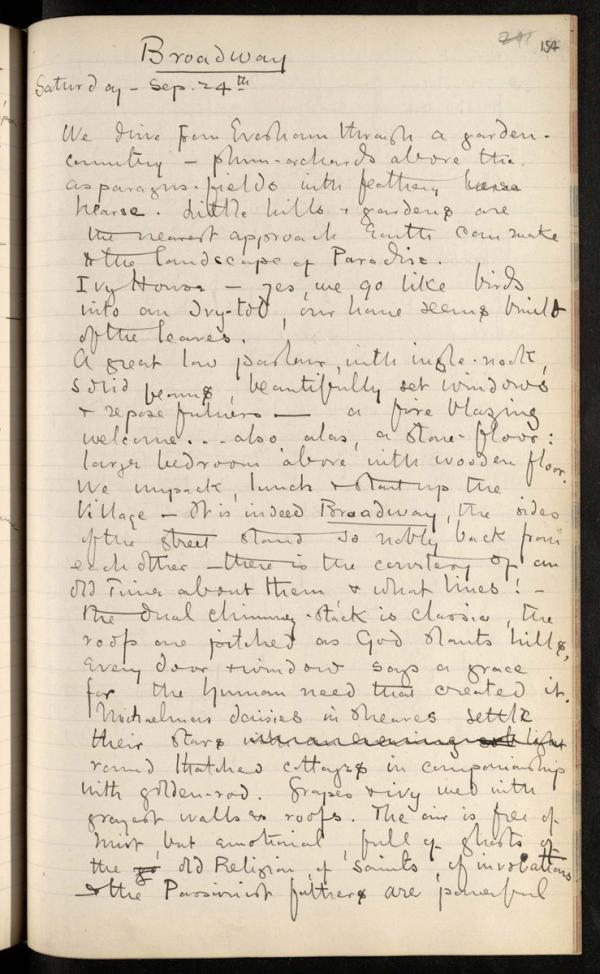 154
Broadway
Saturday - Sep. 24th
We drive from Evesham through a garden-
country - plum-orchards above the
asparagus-fields with feathery
hearse. Little hills & gardens are
the nearest approach Earth can make
to the landscape of Paradise.
Ivy House - yes, we go like birds
into an Ivy-tod, our home seems built
of the leaves.
A great low parlour, with ingle-nook,
solid beams, beautifully set windows
& repose - a fire blazing
welcome... also alas, a stone-floor:
large bedroom above with wooden floor.
We unpack, lunch & start up the
Village - It is indeed Broadway, the sides
of the street stand so nobly back from
each other - there is the courtesy of an
Old Time about them & what lines! -
the dual chimney-stack is classic, the
roofs are pitched as God slants hills,
Every door & window says a grace
for the human need that created it.
Michaelmas daisies in sheaves settle
their stars light
round thatched cottages in companionship
with golden-rod. Grapes & ivy wed with
grayest walls & roofs. The air is free of
mist, but emotional, full of ghosts of
the old Religion, of Saints, of invocations
& the Passionist fathers are powerful